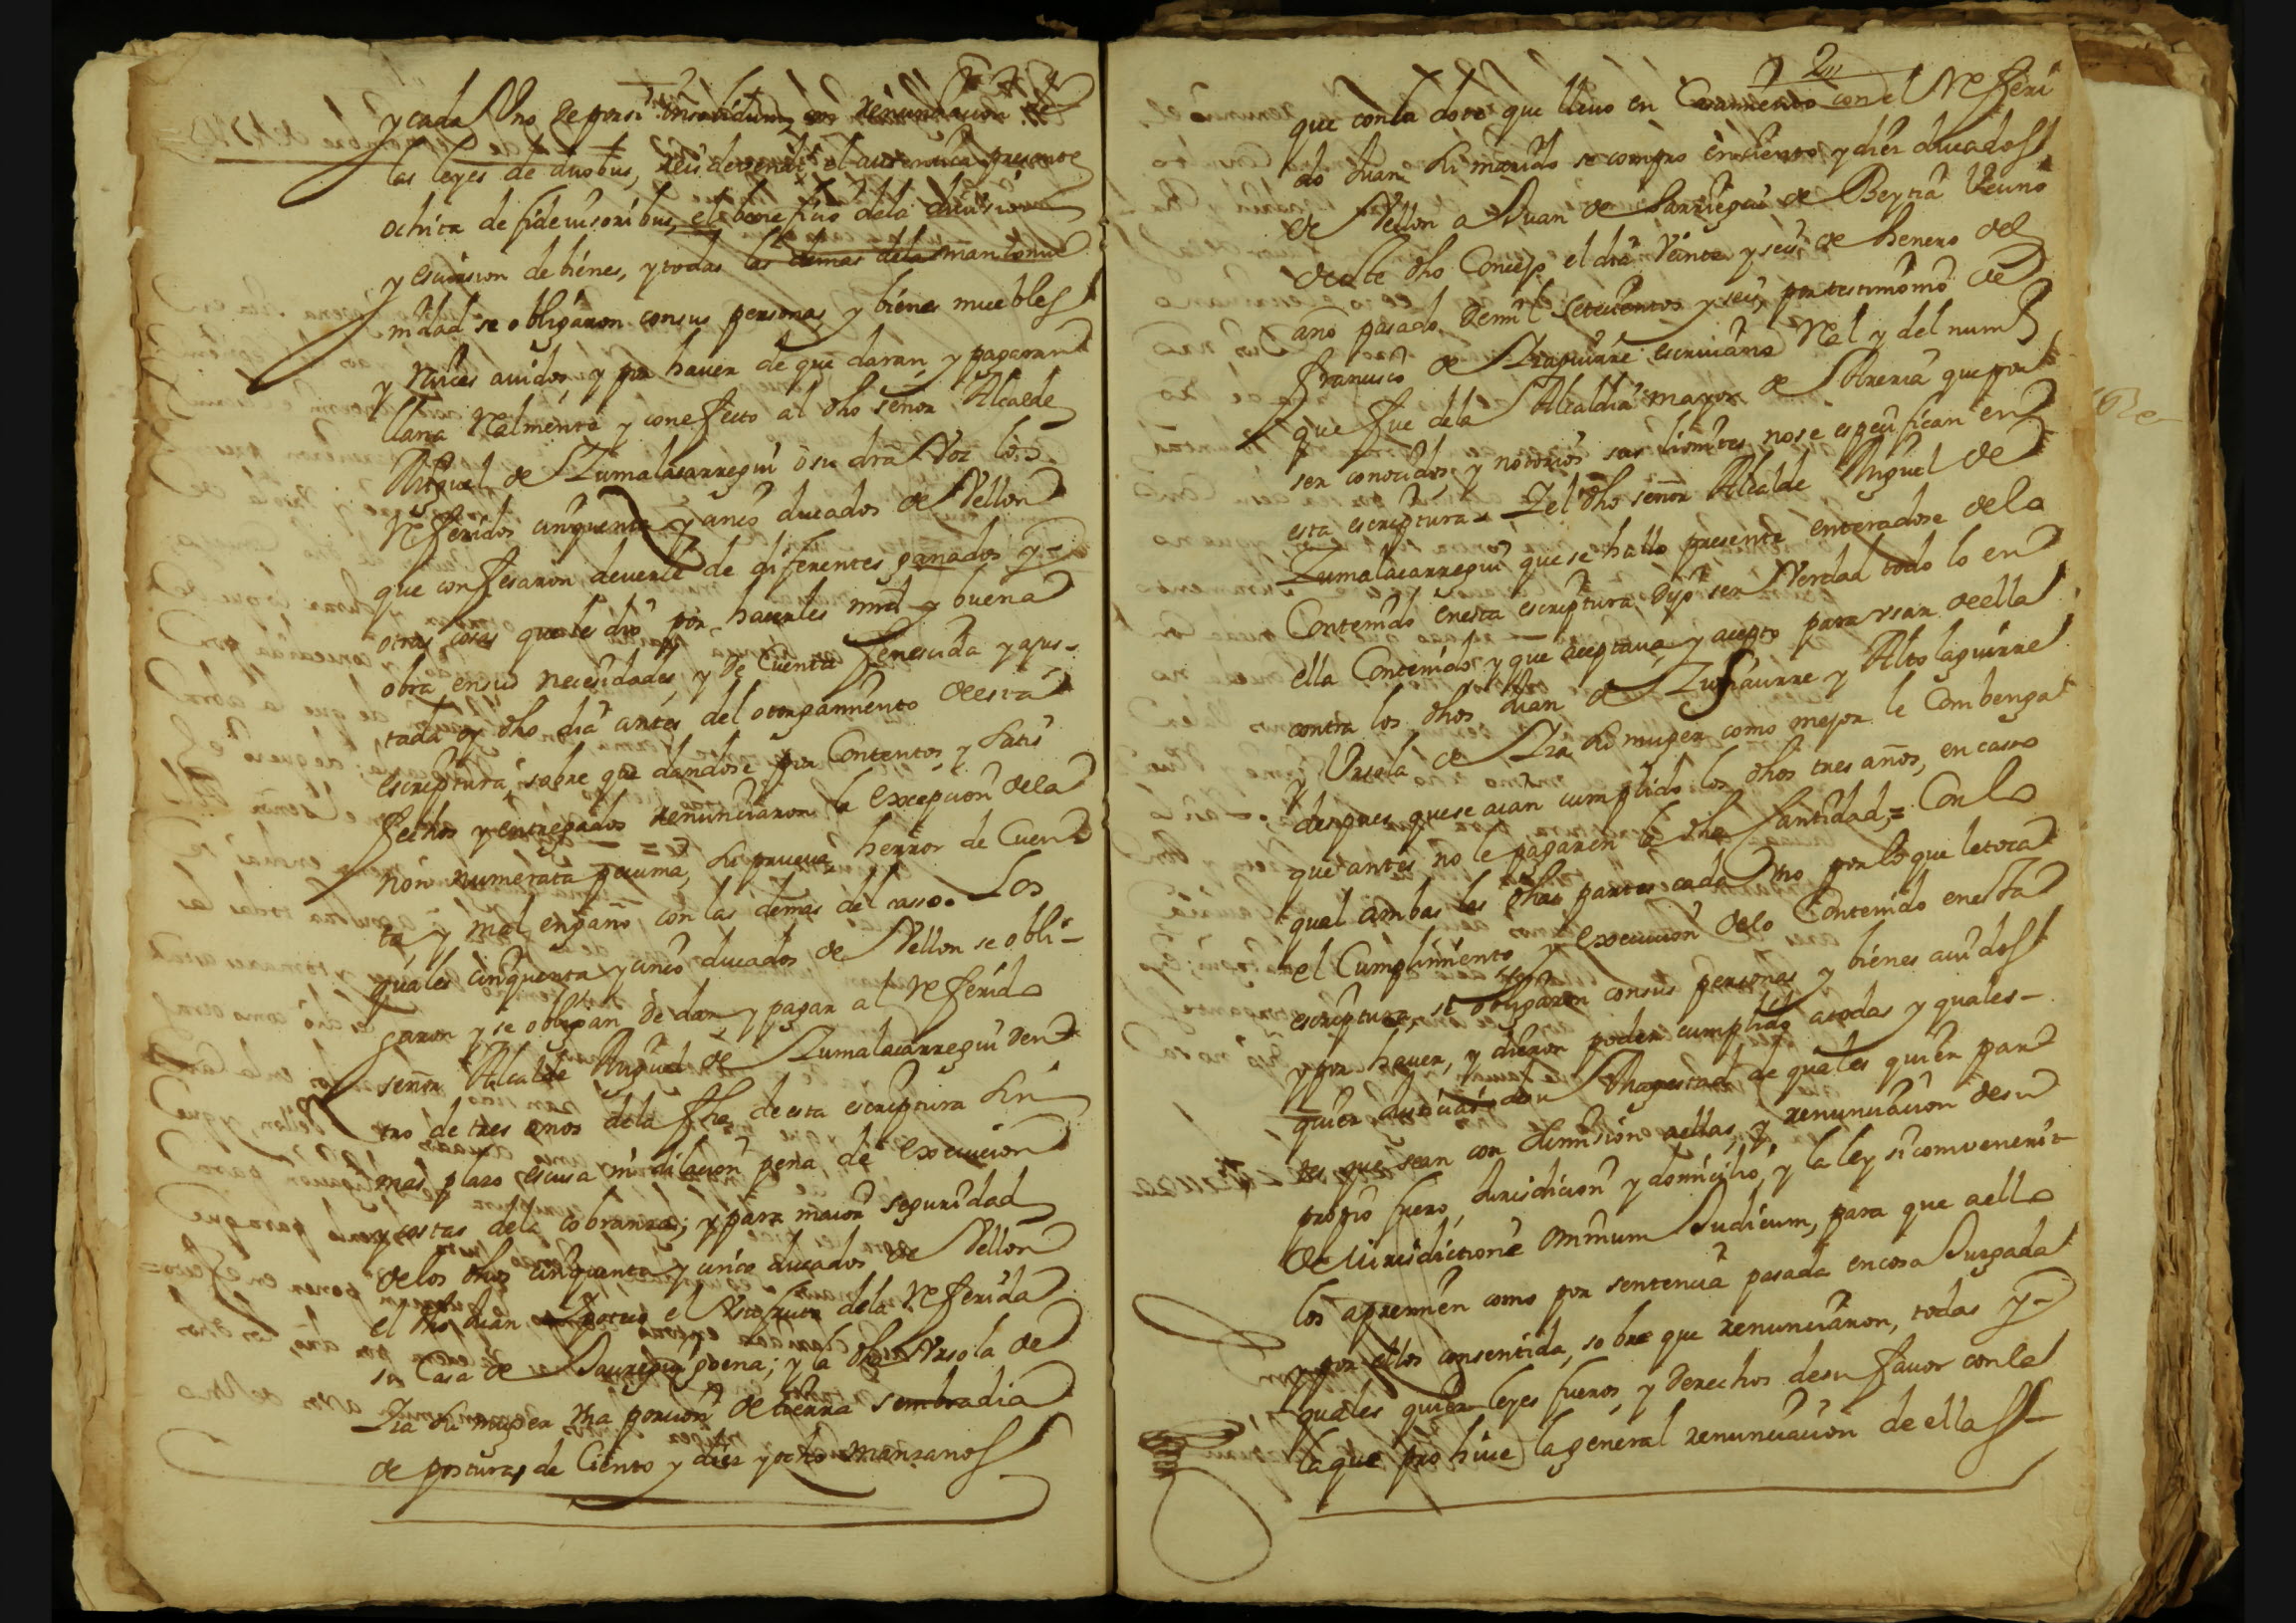 y cada Uno de por si insolidum, con renunciacion de
las leyes de duobus, reis devendi el autentica presente
ochita de fidejusoribus, el beneficio dela division
y escursion de bienes, y todas las demas dela mancomu
nidad se obligaron consus personas, y bienes muebles
y raices auidos y por hauer de que daran, y pagaran
llana Realmente y conefecto al dho señor Alcalde
Miguel de Zumalacarregui o su dra Voz los
Referidos cinquenta y cinco ducados de Vellon
que confesaron deuerle de diferentes ganados y
otras cosas que les dio por hacerles mrd y buena
obra ensus necesidades, y de Cuenta fenescida y ajus-
tada oy dho dia antes del otorgamiento deesta
escriptura, sobre que dandose por Contentos, y satis
fechos y entregados renunciaron la excepcion dela
non numerata pecunia, su prueua, herror de Cuen
ta y mal engaño con las demas del casso. Los
quales cinquenta y cinco ducados de Vellon se obli-
garon y se obligan de dar, y pagar al referido
señor Alcalde Miguel de Zumalacarregui den
tro de tres años dela fha deesta escriptura sin
mas plazo escusa ni dilacion pena de execucion
y costas dela cobranza; y para maior seguridad
delos dhos cinquenta y cinco ducados de Vellon
el dho Juan el Usofruto dela referida
su Casa de Jauregui goena; y la dha Ursola de
su muger Una porcion de tierra sembradia
de posturas de Ciento y diez y ocho manzanos
2
que conla dote que lleuo en Casamiento con el Referi
do Juan su marido se compro enciento y diez ducados
de Vellon a Juan de Larregui de Beytia Vecino
deeste dho Concejo el dia Veinte y seis de henero del
año pasado demil setecientos y seis, por testimonio de
Francisco de escriuano Real y del num
que fue dela Alcaldia mayor de que por
ser conocidos, y notorios sus limites nose especifican en
esta escriptura. Y el dho señor Alcalde Miguel de
Zumalacarregui que se hallo presente enteradose dela
Contenido enesta escriptura Dijo ser Verdad todo lo en
ella Contenido, y que aceptaua, y acepto para usar deella
contra los dhos Juan de y Altolaguirre
y Ursola de su muger como mejor le Combenga
despues que se aian cumplido los dhos tres años, en casso
que antes no le pagaren la dha Cantidad,= Con lo
qual ambas las dhas partes cada Uno por lo que letoca
el Cumplimiento y execucion delo Contenido enesta
escriptura, se obligaron consus personas y bienes auidos
y por hauer, y dieron poder cumplido atodas y quales-
quier Justicias desu Magestad de quales quier par
tes que sean con sumision aellas, y renunciacion desu
propio fuero, Jurisdicion y domicilio, y la ley si convenerit
de Jurisdictione Omnium Judicum, para que aello
los apremien como por sentencia pasada encosa Juzgada
y por ellos consentida, sobre que renunciaron, todas y
quales quier leyes fueros, y derechos desu fauor conla
laque prohiue la general renunciacion de ellas-